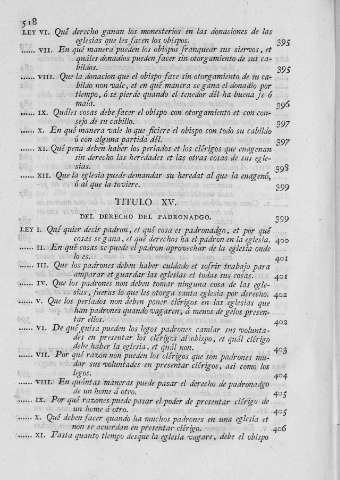 518
LEY VI. Qué derecho ganan los monesterios en las donaciones de las
eglesias que les facen los obispos. 395
...... VII. En qué manera pueden los obispos franquear sus siervos, et
quáles donadíos pueden facer sin otorgamiento de sus ca-
bildos. 395
...... VIII. Que la donacion que el obispo face sin otorgamiento de su ca-
bildo non vale, et en qué manera se gana el donadío por
tiempo, ó se pierde quando el tenedor dél ha buena fe ó
mala. 396
...... IX. Quáles cosas debe facer el obispo con otorgamiento et con con-
sejo de su cabillo. 397
...... X. En qué manera vale lo que ficiere el obispo con todo su cabildo
ó con alguna partida dél. 397
...... XI. Qué pena deben haber los perlados et los clérigos que enagenan
sin derecho las heredades et las otras cosas de sus egle-
sias. 398
...... XII. Que la eglesia puede demandar su heredat al que la enagenó,
ó al que la toviere. 399
TITULO XV.
DEL DERECHO DEL PADRONADGO. 399
LEY I. Qué quier decir padron, et qué cosa es padronadgo, et por qué
cosas se gana, et qué derechos ha el padron en la eglesia. 400
...... II. En qué cosas se puede el padron aprovechar de la eglesia onde
lo es. 401
...... III. Que los padrones deben haber cuidado et sofrir trabajo para
amparar et guardar las eglesias et todas sus cosas. 401
...... IV. Que los padrones non deben tomar ninguna cosa de las egle-
sias, fueras lo que les otorga santa eglesia por derecho. 401
...... V. Que los perlados non deben poner clérigos en las eglesias que
han padrones quando vagaren, á menos de gelos presen-
tar ellos. 402
...... VI. De qué guisa pueden los legos padrones camiar sus volunta-
des en presentar los clérigos al obispo, et quál clérigo
debe haber la eglesia, et quál non. 403
...... VII. Por qué razon non pueden los clérigos que son padrones mu-
dar sus voluntades en presentar clérigos, asi como los
legos. 404
...... VIII. En quántas maneras puede pasar el derecho de padronadgo
de un home á otro. 405
...... IX. Por qué razones puede pasar el poder de presentar clérigo de
un home á otro. 405
...... X. Qué deben facer quando ha muchos padrones en una eglesia et
non se acuerdan en presentar clérigo. 406
...... XI. Fasta quanto tiempo desque la eglesia vagare, debe el obispo